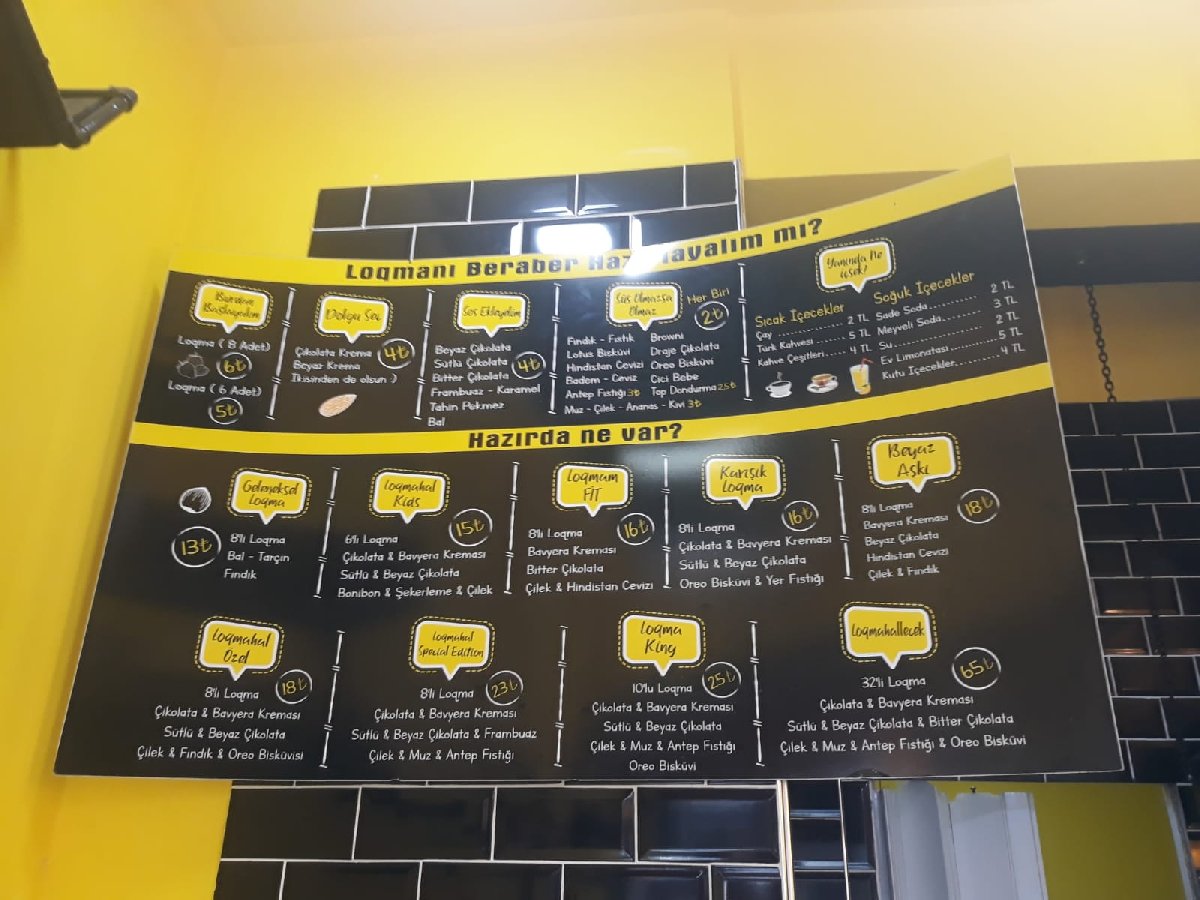 Loqmanı Beraber Hazırlayalım mı?
Buradan
Başlayalım
Loqma ( 8 Adet)
6₺
Loqma ( 6 Adet)
5₺
Dolgu Seç
Çikolata Krema
Beyaz Krema
İkisinden de olsun :)
4₺
Sos Ekleyelim
Beyaz Çikolata
Sütlü Çikolata
Bitter Çikolata
Frambuaz - Karamel
Tahin Pekmez
Bal
4₺
Süs Olmazsa
Olmaz
Her Biri
2₺
Fındık - Fıstık
Lotus Bisküvi
Hindistan Cevizi
Badem - Ceviz
Antep Fıstığı 3₺
Muz - Çilek - Ananas - Kivi 3₺
Browni
Draje Çikolata
Oreo Bisküvi
Cici Bebe
Top Dondurma 2.5₺
Yanında Ne
içsek?
Sıcak İçecekler
Çay 2 TL
Türk Kahvesi 5 TL
Kahve Çeşitleri 4 TL
Soğuk İçecekler
Sade Soda 2 TL
Meyveli Soda 3 TL
Su 2 TL
Ev Limonatası 5 TL
Kutu İçecekler 4 TL
Hazırda ne var?
Geleneksel
Loqma
13₺
8'li Loqma
Bal - Tarçın
Fındık
Loqmahal
Kids
15₺
6'lı Loqma
Çikolata & Bavyera Kreması
Sütlü & Beyaz Çikolata
Bonibon & Şekerleme & Çilek
Loqmam
FİT
16₺
8'li Loqma
Bavyera Kreması
Bitter Çikolata
Çilek & Hindistan Cevizi
Karışık
Loqma
16₺
8'li Loqma
Çikolata & Bavyera Kreması
Sütlü & Beyaz Çikolata
Oreo Bisküvi & Yer Fıstığı
Beyaz
Aşkı
18₺
8'li Loqma
Bavyera Kreması
Beyaz Çikolata
Hindistan Cevizi
Çilek & Fındık
Loqmahal
Özel
18₺
8'li Loqma
Çikolata & Bavyera Kreması
Sütlü & Beyaz Çikolata
Çilek & Fındık & Oreo Bisküvisi
Loqmahal
Special Edition
23₺
8'li Loqma
Çikolata & Bavyera Kreması
Sütlü & Beyaz Çikolata & Frambuaz
Çilek & Muz & Antep Fıstığı
Loqma
King
25₺
10'lu Loqma
Çikolata & Bavyera Kreması
Sütlü & Beyaz Çikolata
Çilek & Muz & Antep Fıstığı
Oreo Bisküvi
Loqmahallecek
65₺
32'li Loqma
Çikolata & Bavyera Kreması
Sütlü & Beyaz Çikolata & Bitter Çikolata
Çilek & Muz & Antep Fıstığı & Oreo Bisküvi